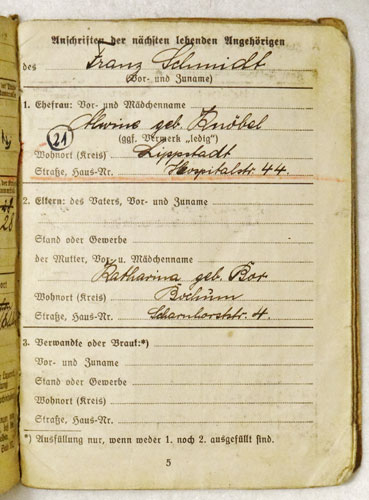 Anschriften der nächsten lebenden Angehörigen
des Franz Schmidt
(Vor- und Zuname)
1. Ehefrau: Vor- und Mädchenname
Alwine geb. Knöbel
(ggf. Vermerk „ledig")
21
Wohnort (Kreis) Lippstadt
Straße, Haus-Nr. Hospitalstr. 44.
2. Eltern: des Vaters, Vor- und Zuname
Stand oder Gewerbe
der Mutter, Vor- u. Mädchenname
Katharina geb. Bor
Wohnort (Kreis) Bochum
Straße, Haus-Nr. Scharnhorststr. 4.
3. Verwandte oder Braut:*)
Vor- und Zuname
Stand oder Gewerbe
Wohnort (Kreis)
Straße, Haus-Nr.
*) Ausfüllung nur, wenn weder 1. noch 2. ausgefüllt sind.
5